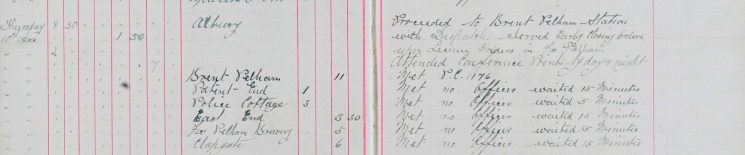 Thursday 8 30 Albury Proceeded to Brent Pelham Station
10th Dec 1 30 with Despatch - Served Early Closing Orders
" 2 upon Licence Holders in Fx Pelham
" 7 Attended Conference Points 14 days night
" Brent Pelham 11 Met P.C. 176
" Patent End 1 Met no Officer waited 15 Minutes
" Police Cottage 3 Met no Officer waited 5 Minutes
" East End 3 30 Met no Officer waited 15 Minutes
" Fx Pelham Brewery 5 Met no Officer waited 15 Minutes
" Clapgate 6 Met no Officer waited 15 Minutes